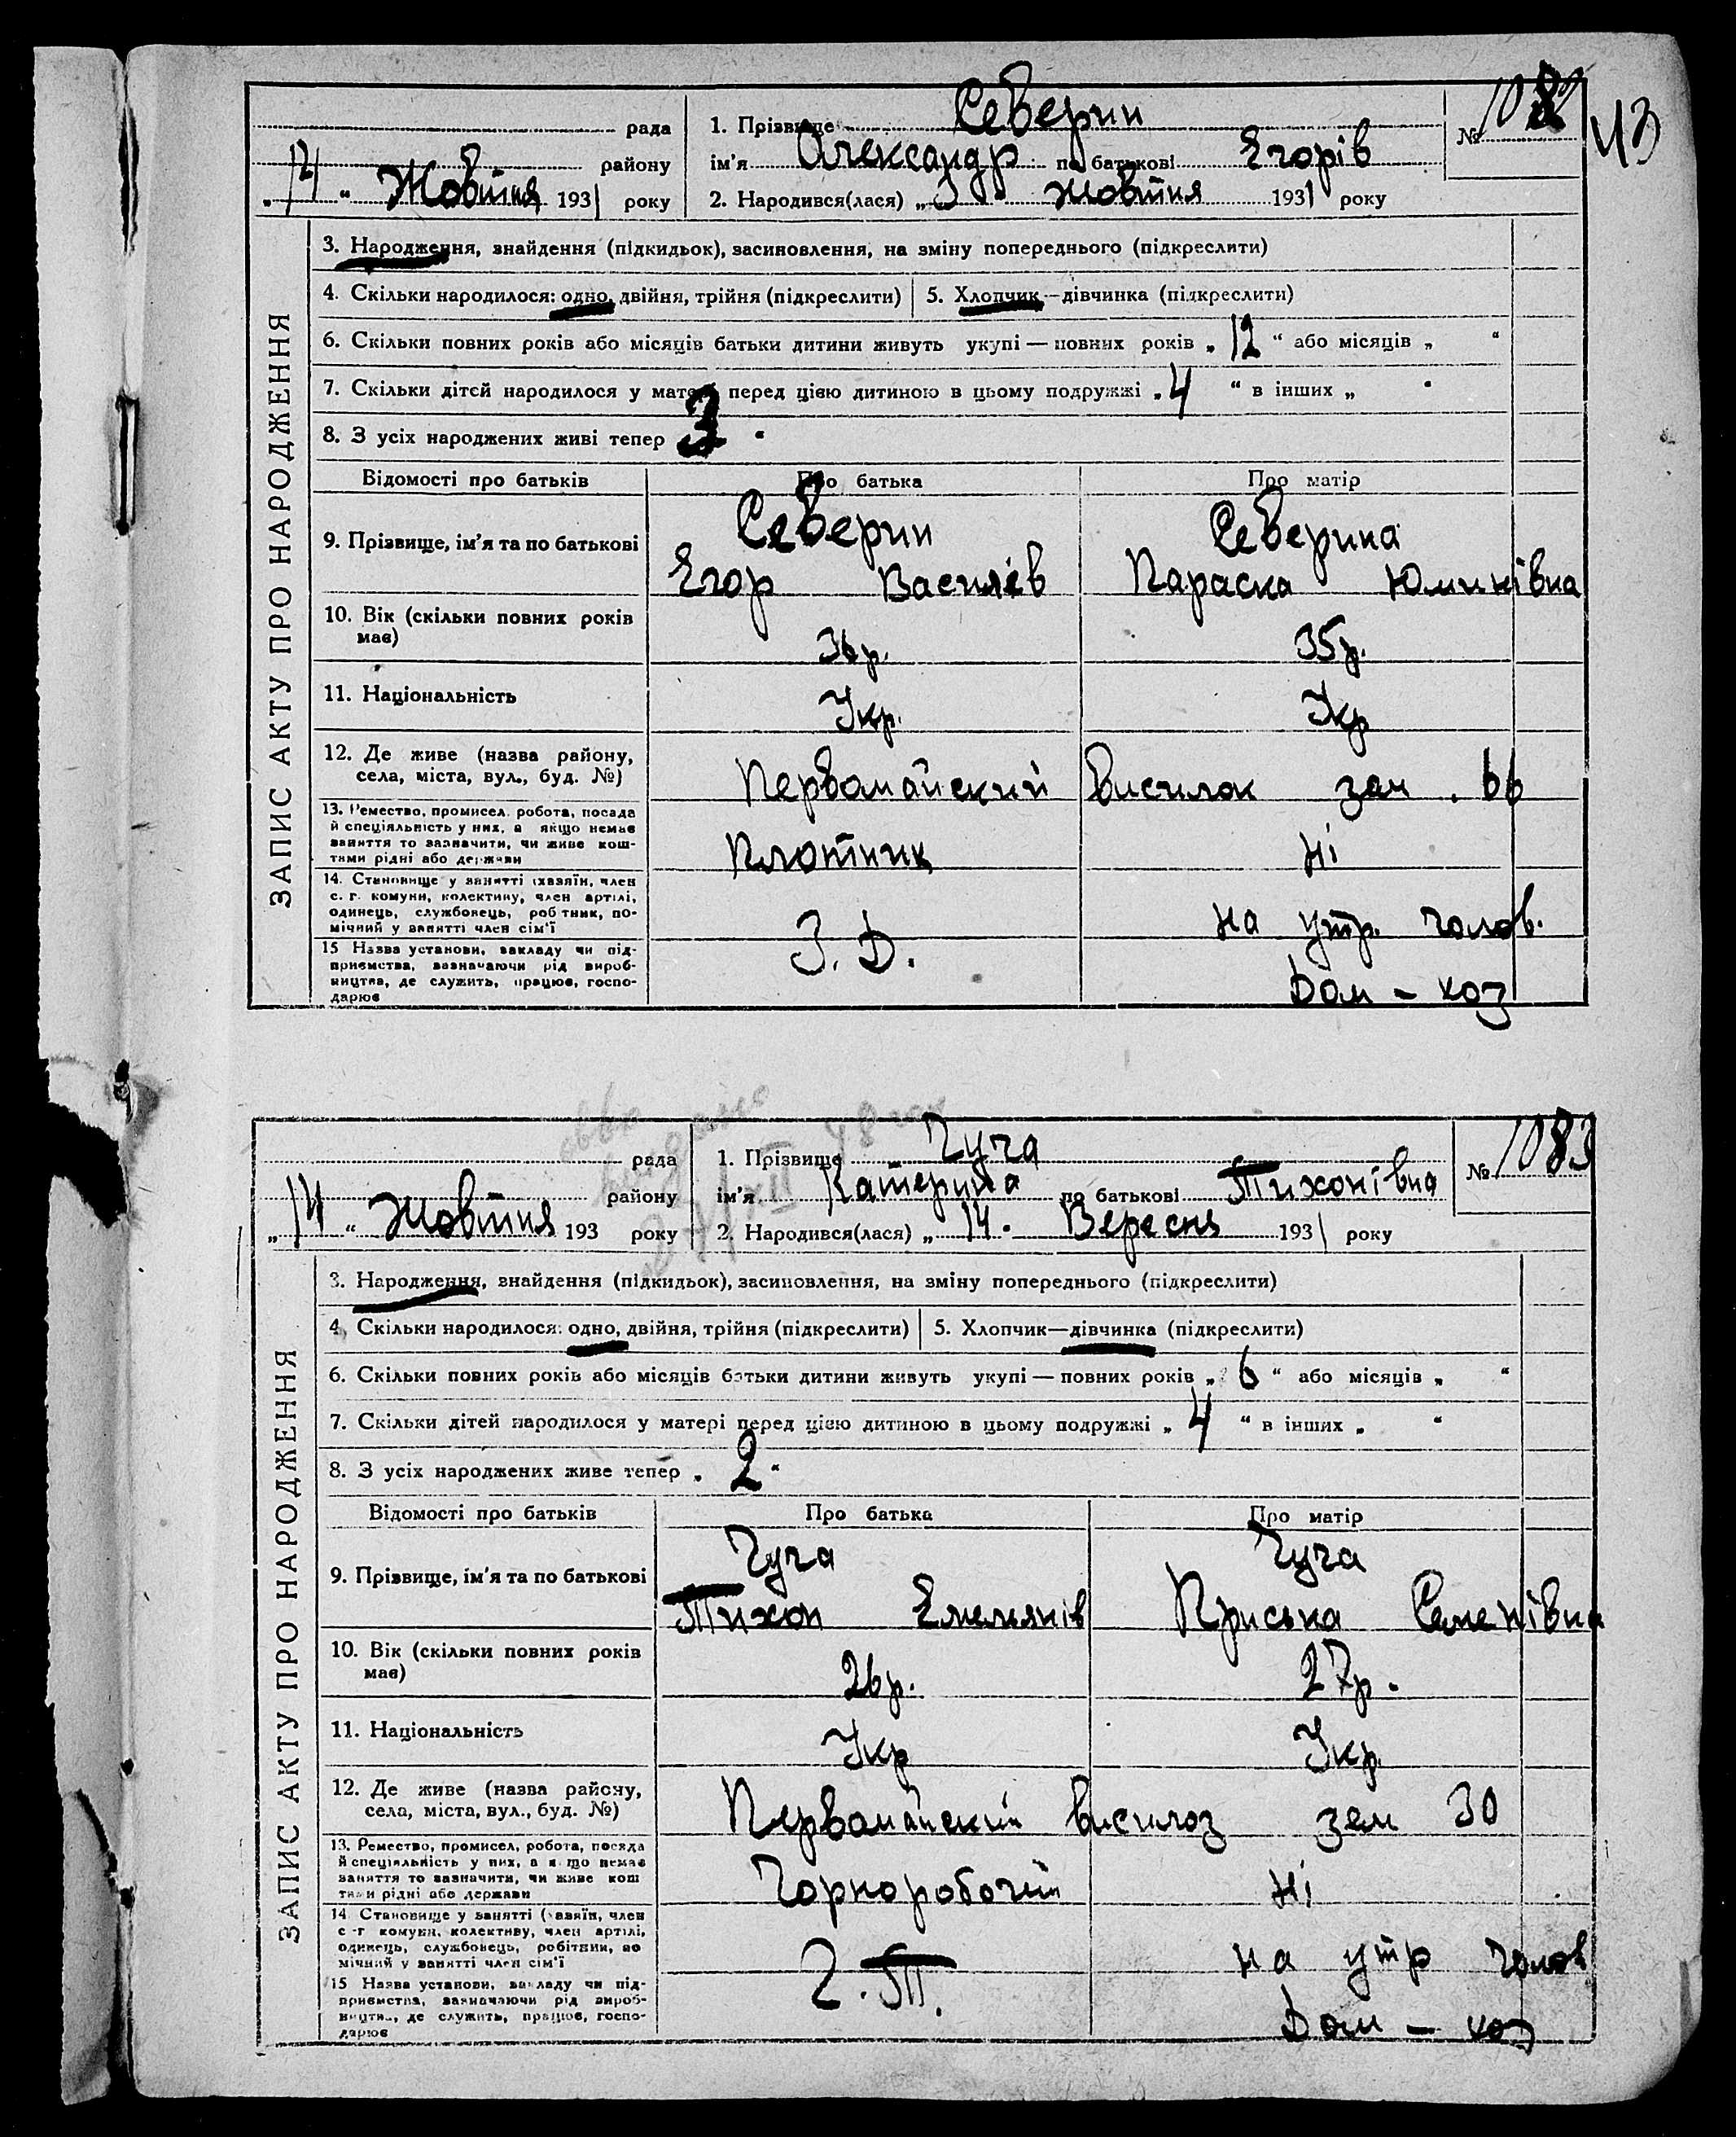 1082
43
рада
1. Прізвище Северин
№
району
ім'я Олександр по батькові Єгорів
„14“ Жовтня 1931 року
2. Народився(лася) „3“ Жовтня 1931 року
ЗАПИС АКТУ ПРО НАРОДЖЕННЯ
3. Народження, знайдення (підкидьок), засиновлення, на зміну попереднього (підкреслити)
4. Скільки народилося: одно, двійня, трійня (підкреслити)
5. Хлопчик—дівчинка (підкреслити)
6. Скільки повних років або місяців батьки дитини живуть укупі — повних років „12“ або місяців „ “
7. Скільки дітей народилося у матері перед цією дитиною в цьому подружжі „4 “ в інших „ “
8. З усіх народжених живі тепер 3
Відомості про батьків
Про батька
Про матір
9. Прізвище, ім'я та по батькові
Северин
Егор Василів
Северина
Параска
10. Вік (скільки повних років має)
36р.
35р.
11. Національність
Укр.
Укр
12. Де живе (назва району,
села, міста, вул., буд. №)
Первомайский Висилок зем. 66
13. Ремество, промисел, робота, посада
й спеціяльність у них, а якщо немає
заняття то зазначити, чи живе кош-
тами рідні або держави
Плотник
Ні
14. Становище у занятті (хазяїн, член
с. г. комуни, колективу, член артілі,
одинець, службовець, робітник, по-
мічний у занятті член сім'ї
на утр. голов.
15 Назва установи, закладу чи під-
приємства, зазначаючи рід вироб-
ництва, де служить, працює, госпо-
дарює
З. Д.
Дом – хоз
1083
рада
1. Прізвище Чуча
№
району
ім'я Катерина по батькові Тихонівна
„14“ Жовтня 193 року
2. Народився(лася) „14“ Вересня 1931 року
ЗАПИС АКТУ ПРО НАРОДЖЕННЯ
3. Народження, знайдення (підкидьок), засиновлення, на зміну попереднього (підкреслити)
4. Скільки народилося: одно, двійня, трійня (підкреслити)
5. Хлопчик—дівчинка (підкреслити)
6. Скільки повних років або місяців батьки дитини живуть укупі — повних років „6“ або місяців „ “
7. Скільки дітей народилося у матері перед цією дитиною в цьому подружжі „4 “ в інших „ “
8. З усіх народжених живе тепер „2“
Відомості про батьків
Про батька
Про матір
9. Прізвище, ім'я та по батькові
Чуча
Тихон Емельянів
Чуча
Приська Семенівна
10. Вік (скільки повних років
має)
26р.
27р.
11. Національність
Укр
Укр.
12. Де живе (назва району,
села, міста, вул., буд. №)
Первомайский висилоз зем 30
13. Ремество, промисел, робота, посада
й спеціяльність у них, а якщо немає
заняття то зазначити, чи живе кош
тами рідні або держави
Чорноробочий
Ні
14 Становище у занятті (хазяїн, член
с -г комуни, колективу, член артілі,
одинець, службовець, робітник, по
мічний у занятті член сім'ї
на утр голов
15 Назва установи, закладу чи під-
приємства, зазначаючи рід вироб-
ництва, де служить, працює, госпо-
дарює
Дом – хоз